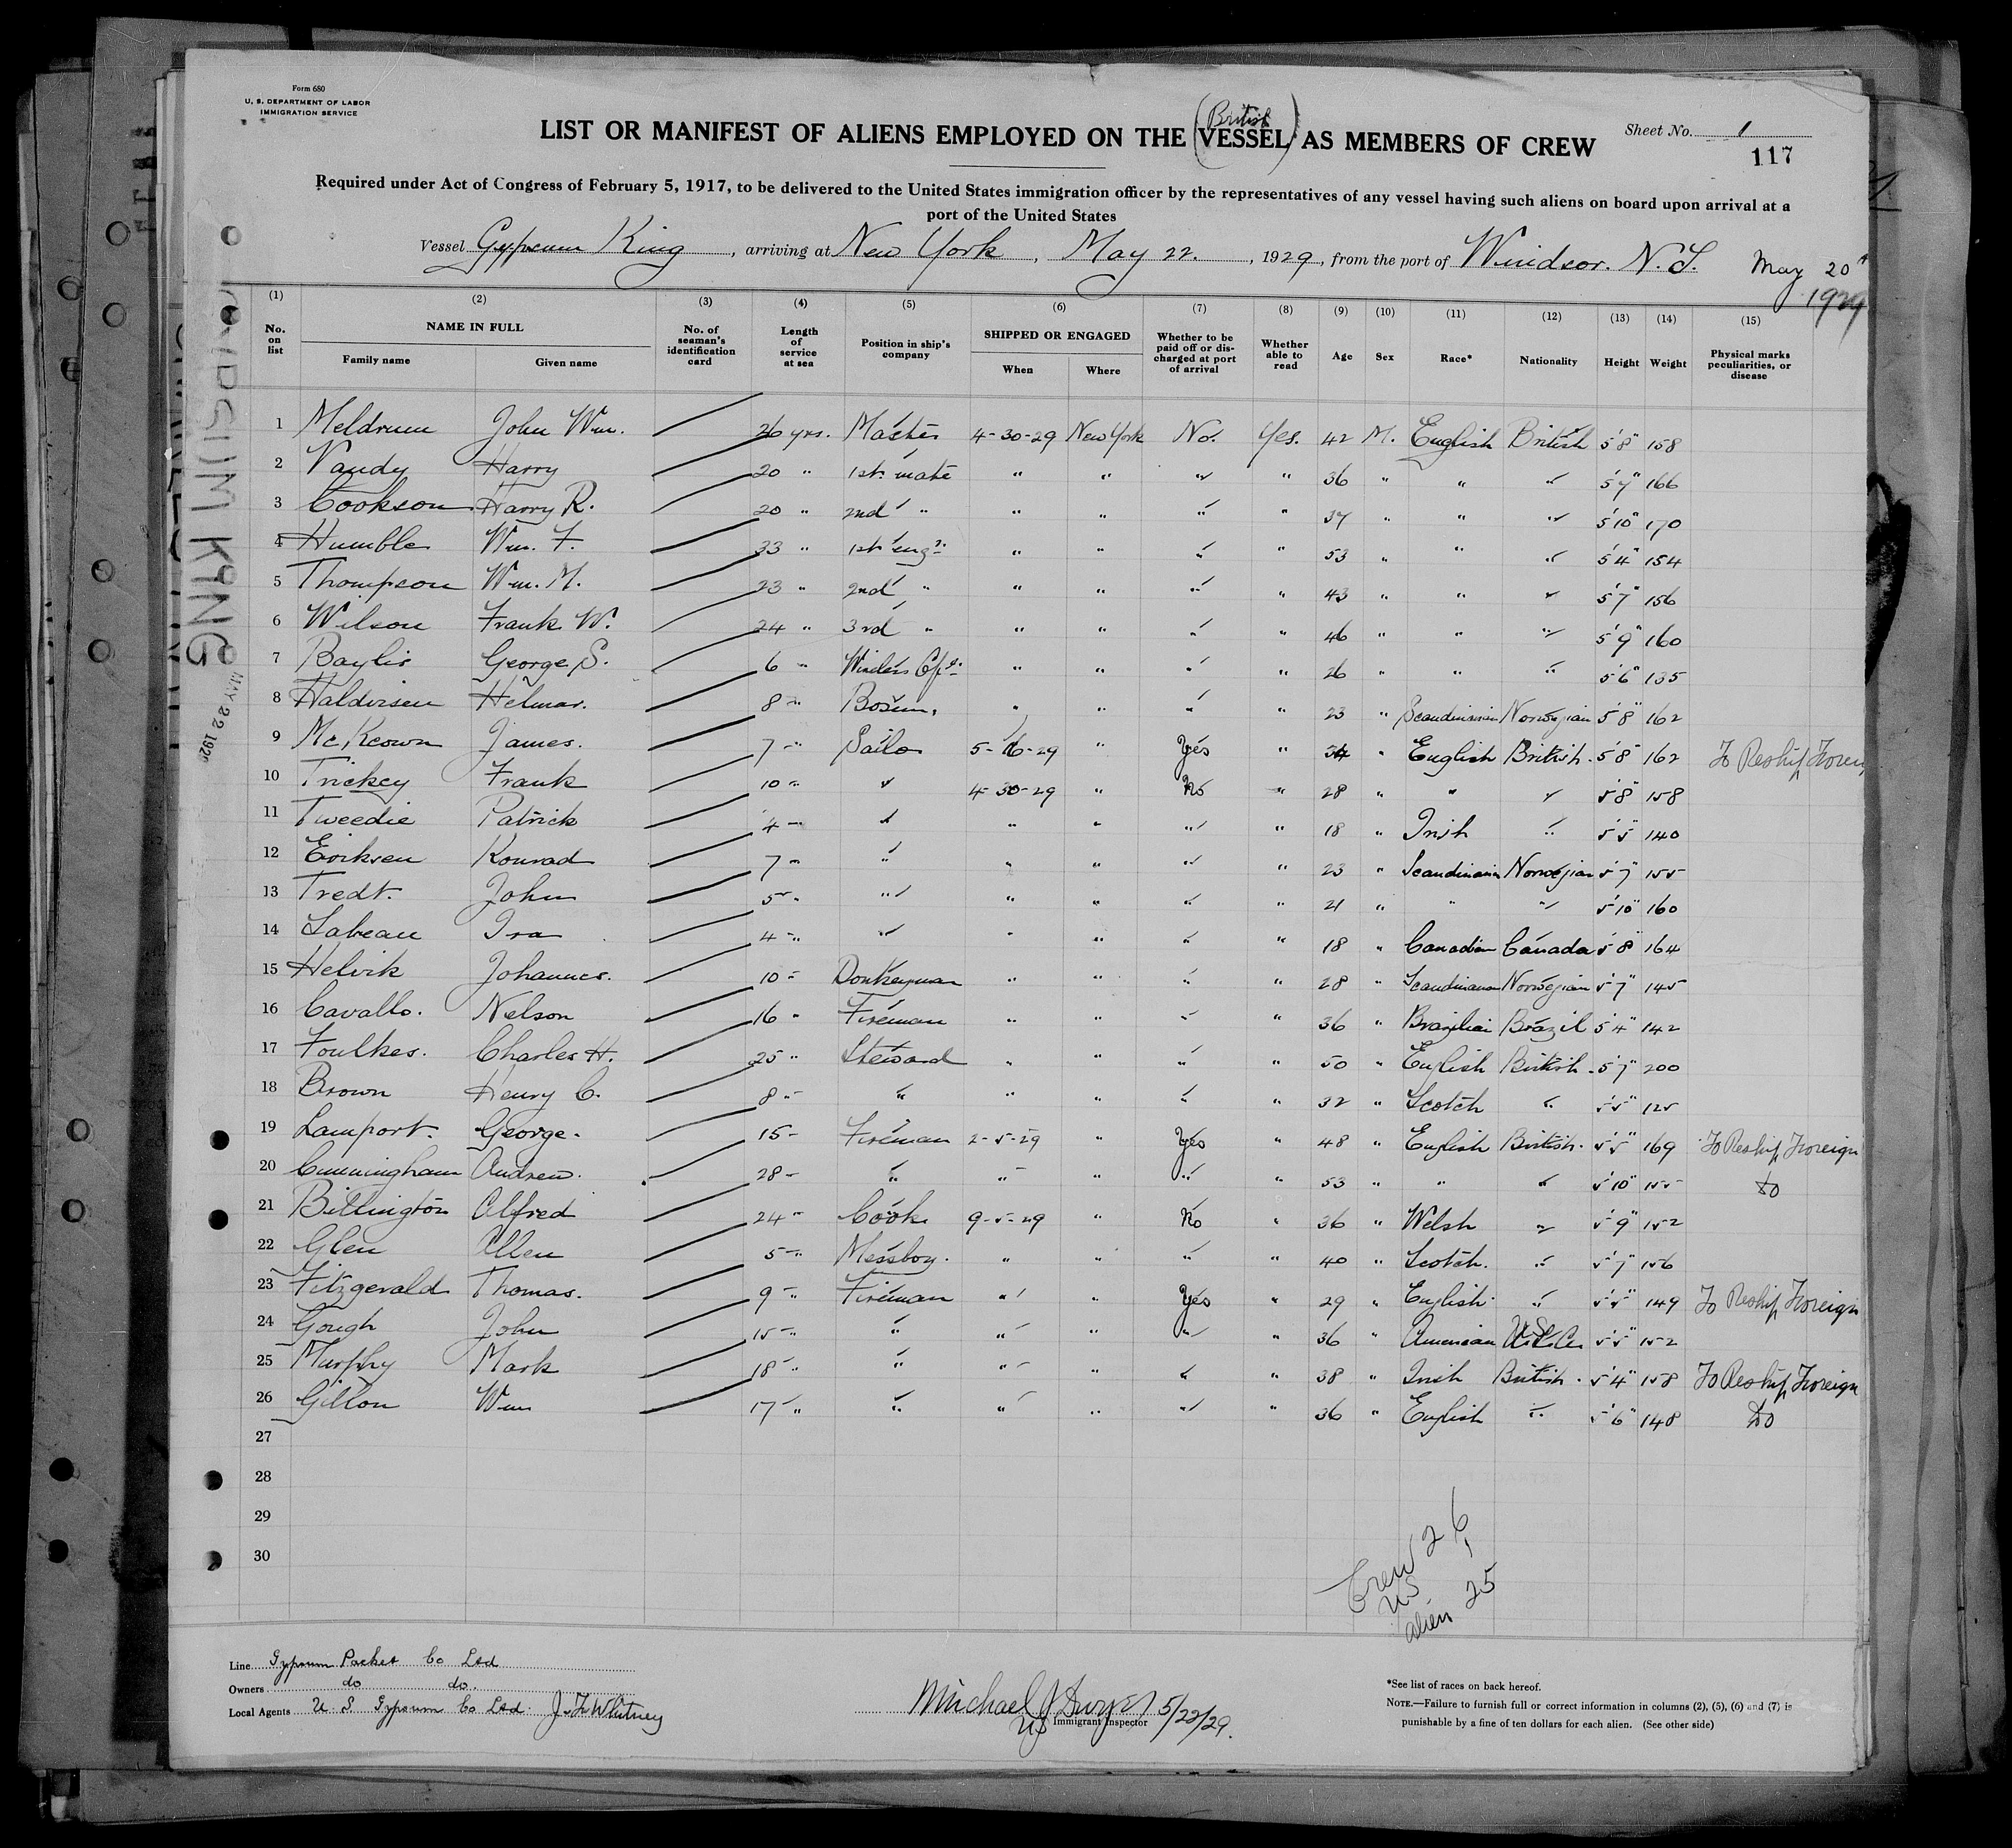 Form 680
U. S. DEPARTMENT OF LABOR
IMMIGRATION SERVICE
LIST OR MANIFEST OF ALIENS EMPLOYED ON THE (VESSEL) AS MEMBERS OF CREW
British
Sheet No. 1
117
Required under Act of Congress of February 5, 1917, to be delivered to the United States immigration officer by the representatives of any vessel having such aliens on board upon arrival at a
port of the United States
Vessel Gypsum King, arriving at New York, May 22, 1929, from the port of Windsor. N.S. May 20th
1929
(1) (2) (3) (4) (5) (6) (7) (8) (9) (10) (11) (12) (13) (14) (15)
No. on list NAME IN FULL Family name Given name No. of seaman's identification card Length of service at sea Position in ship's company SHIPPED OR ENGAGED When Where Whether to be paid off or discharged at port of arrival Whether able to read Age Sex Race* Nationality Height Weight Physical marks peculiarities, or disease
1 Meldrum John Wm. 26 yrs. Master 4-30-29 New York No. Yes. 42 M. English British 5'8" 158
2 Vandy Harry 20 " 1st mate " " " " 36 " " " 5'7" 166
3 Cookson Harry R. 20 " 2nd " " " " " 37 " " " 5'10" 170
4 Humble Wm. F. 33 " 1st engr. " " " " 53 " " " 5'4" 154
5 Thompson Wm. M. 23 " 2nd " " " " " 43 " " " 5'7" 156
6 Wilson Frank W. 24 " 3rd " " " " " 46 " " " 5'9" 160
7 Baylis George S. 6 " " " " " 26 " " " 5'6" 135
8 Haldorsen Helmar. 8 " Bosun. " " " " 23 " Scandinavian Norwegian 5'8" 162
9 McKeown James. 7 " Sailor 5-16-29 " Yes " 34 " English British. 5'8" 162 To Reship Foreign
10 Trickey Frank 10 " " 4-30-29 " No " 28 " " " 5'8" 158
11 Tweedie Patrick 4 " " " " " " 18 " Irish " 5'5" 140
12 Eriksen Konrad 7 " " " " " " 23 " Scandinavian Norwegian 5'7 155
13 Tredt. John 5 " " " " " " 21 " " " 5'10" 160
14 Labeau Ira 4 " " " " " " 18 " Canadian Canada 5'8" 164
15 Helvik Johannes. 10 " Donkeyman " " " " 28 " Scandinavian Norwegian 5'7" 145
16 Cavallo. Nelson 16 " Fireman " " " " 36 " Brazilian Brazil 5'4" 142
17 Foulkes. Charles H. 25 " Steward " " " " 50 " English British. 5'7" 200
18 Brown Henry C. 8 " " " " " " 32 " Scotch " 5'5" 125
19 Lamport. George. 15 " Fireman 2-5-29 " Yes " 48 " English British. 5'5" 169 To Reship Foreign
20 Cunningham Andrew. 28 " " " " " " 53 " " " 5'10" 155 do
21 Billington Alfred 24 " Cook 9-5-29 " No " 36 " Welsh " 5'9" 152
22 Glen Allen 5 " Messboy. " " " " 40 " Scotch. " 5'7" 156
23 Fitzgerald Thomas. 9 " Fireman " " Yes " 29 " English " 5'5" 149 To Reship Foreign
24 Gough John 15 " " " " " " 36 " American U.S.A. 5'5" 152
25 Murphy Mark 18 " " " " " " 38 " Irish British. 5'4" 158 To Reship Foreign
26 Gillon Wm 17 " " " " " " 36 " English " 5'6" 148 do
27
28
29
30
Crew 26
US 1
alien 25
GYPSUM KING
MAY 22 192
Line Gypsum Packet Co Ltd
Owners do do.
Local Agents U. S. Gypsum Co Ltd. J. F. Whitney
Michael J Dwyer 5/22/29.
US Immigrant Inspector
*See list of races on back hereof.
NOTE.—Failure to furnish full or correct information in columns (2), (5), (6) and (7) is
punishable by a fine of ten dollars for each alien. (See other side)